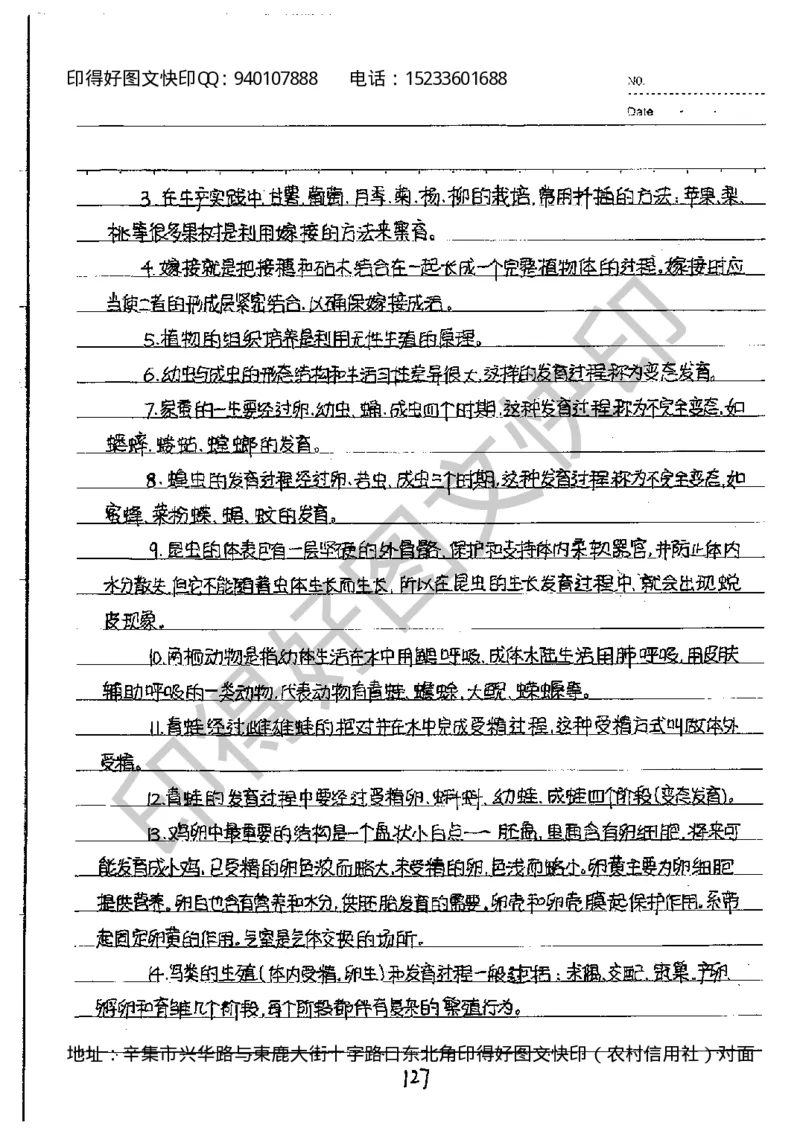 印得好图文快印QQ：940107888 电话：15233601688
NO.
Date - -
3.在生产实践中,甘薯.葡萄.月季.菊.杨.柳的栽培,常用扦插的方法;苹果.梨.
桃等很多果树是利用嫁接的方法来繁育。
4.嫁接就是把接穗和砧木结合在一起长成一个完整植物体的过程。嫁接时应
当使二者的形成层紧密结合,以确保嫁接成活。
5.植物的组织培养是利用无性生殖的原理。
6.幼虫与成虫的形态结构和生活习性差异很大,这样的发育过程称为变态发育。
7.家蚕的一生要经过卵.幼虫、蛹.成虫四个时期,这种发育过程称为不完全变态,如
蟋蟀.蝼蛄.螳螂的发育。
8.蝗虫的发育过程经过卵.若虫、成虫三个时期,这种发育过程称为不完全变态,如
蜜蜂、菜粉蝶、蝇、蚊的发育。
9.昆虫的体表包有一层坚硬的外骨骼、保护和支持体内柔软器官,并防止体内
水分散失,但它不能随着虫体生长而生长、所以在昆虫的生长发育过程中、就会出现蜕
皮现象。
10.两栖动物是指幼体生活在水中用鳃呼吸.成体水陆生活用肺呼吸,用皮肤
辅助呼吸的一类动物,代表动物有青蛙、蟾蜍、大鲵、蝾螈等。
11.青蛙经过雌雄蛙的抱对并在水中完成受精过程,这种受精方式叫做体外
受精。
12.青蛙的发育过程中要经过受精卵.蝌蚪、幼蛙.成蛙四个阶段(变态发育)。
13.鸡卵中最重要的结构是一个盘状小白点——胚盘,里面含有卵细胞,将来可
能发育成小鸡,已受精的卵色浓而略大,未受精的卵,色浅而略小。卵黄主要为卵细胞
提供营养。卵白也含有营养和水分,供胚胎发育的需要。卵壳和卵壳膜起保护作用。系带
起固定卵黄的作用。气室是气体交换的场所。
14.鸟类的生殖(体内受精,卵生)和发育过程一般包括:求偶、交配、筑巢、产卵
孵卵和育雏几个阶段,每个阶段都伴有复杂的繁殖行为。
地址：辛集市兴华路与束鹿大街十字路口东北角印得好图文快印（农村信用社）对面
127
印得好图文快印